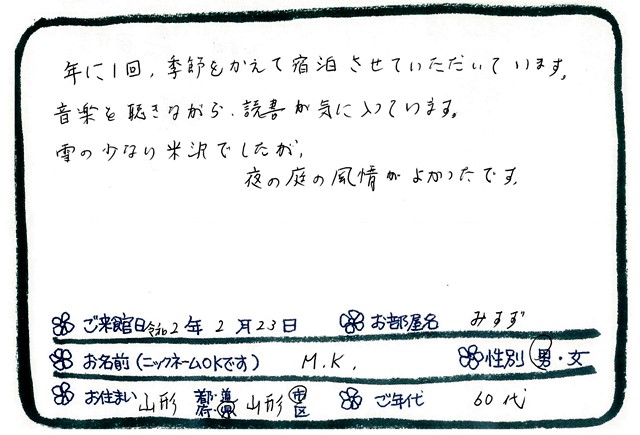 年に1回、季節をかえて宿泊させていただいています。
音楽を聴きながら、読書が気に入っています。
雪の少ない米沢でしたが、
夜の庭の風情がよかったです。
ご来館日 令和2年2月23日 お部屋名 みすず
お名前(ニックネームOKです) M.K. 性別 男・女
お住まい 山形 都・道・府・県 山形 市区 ご年代 60代